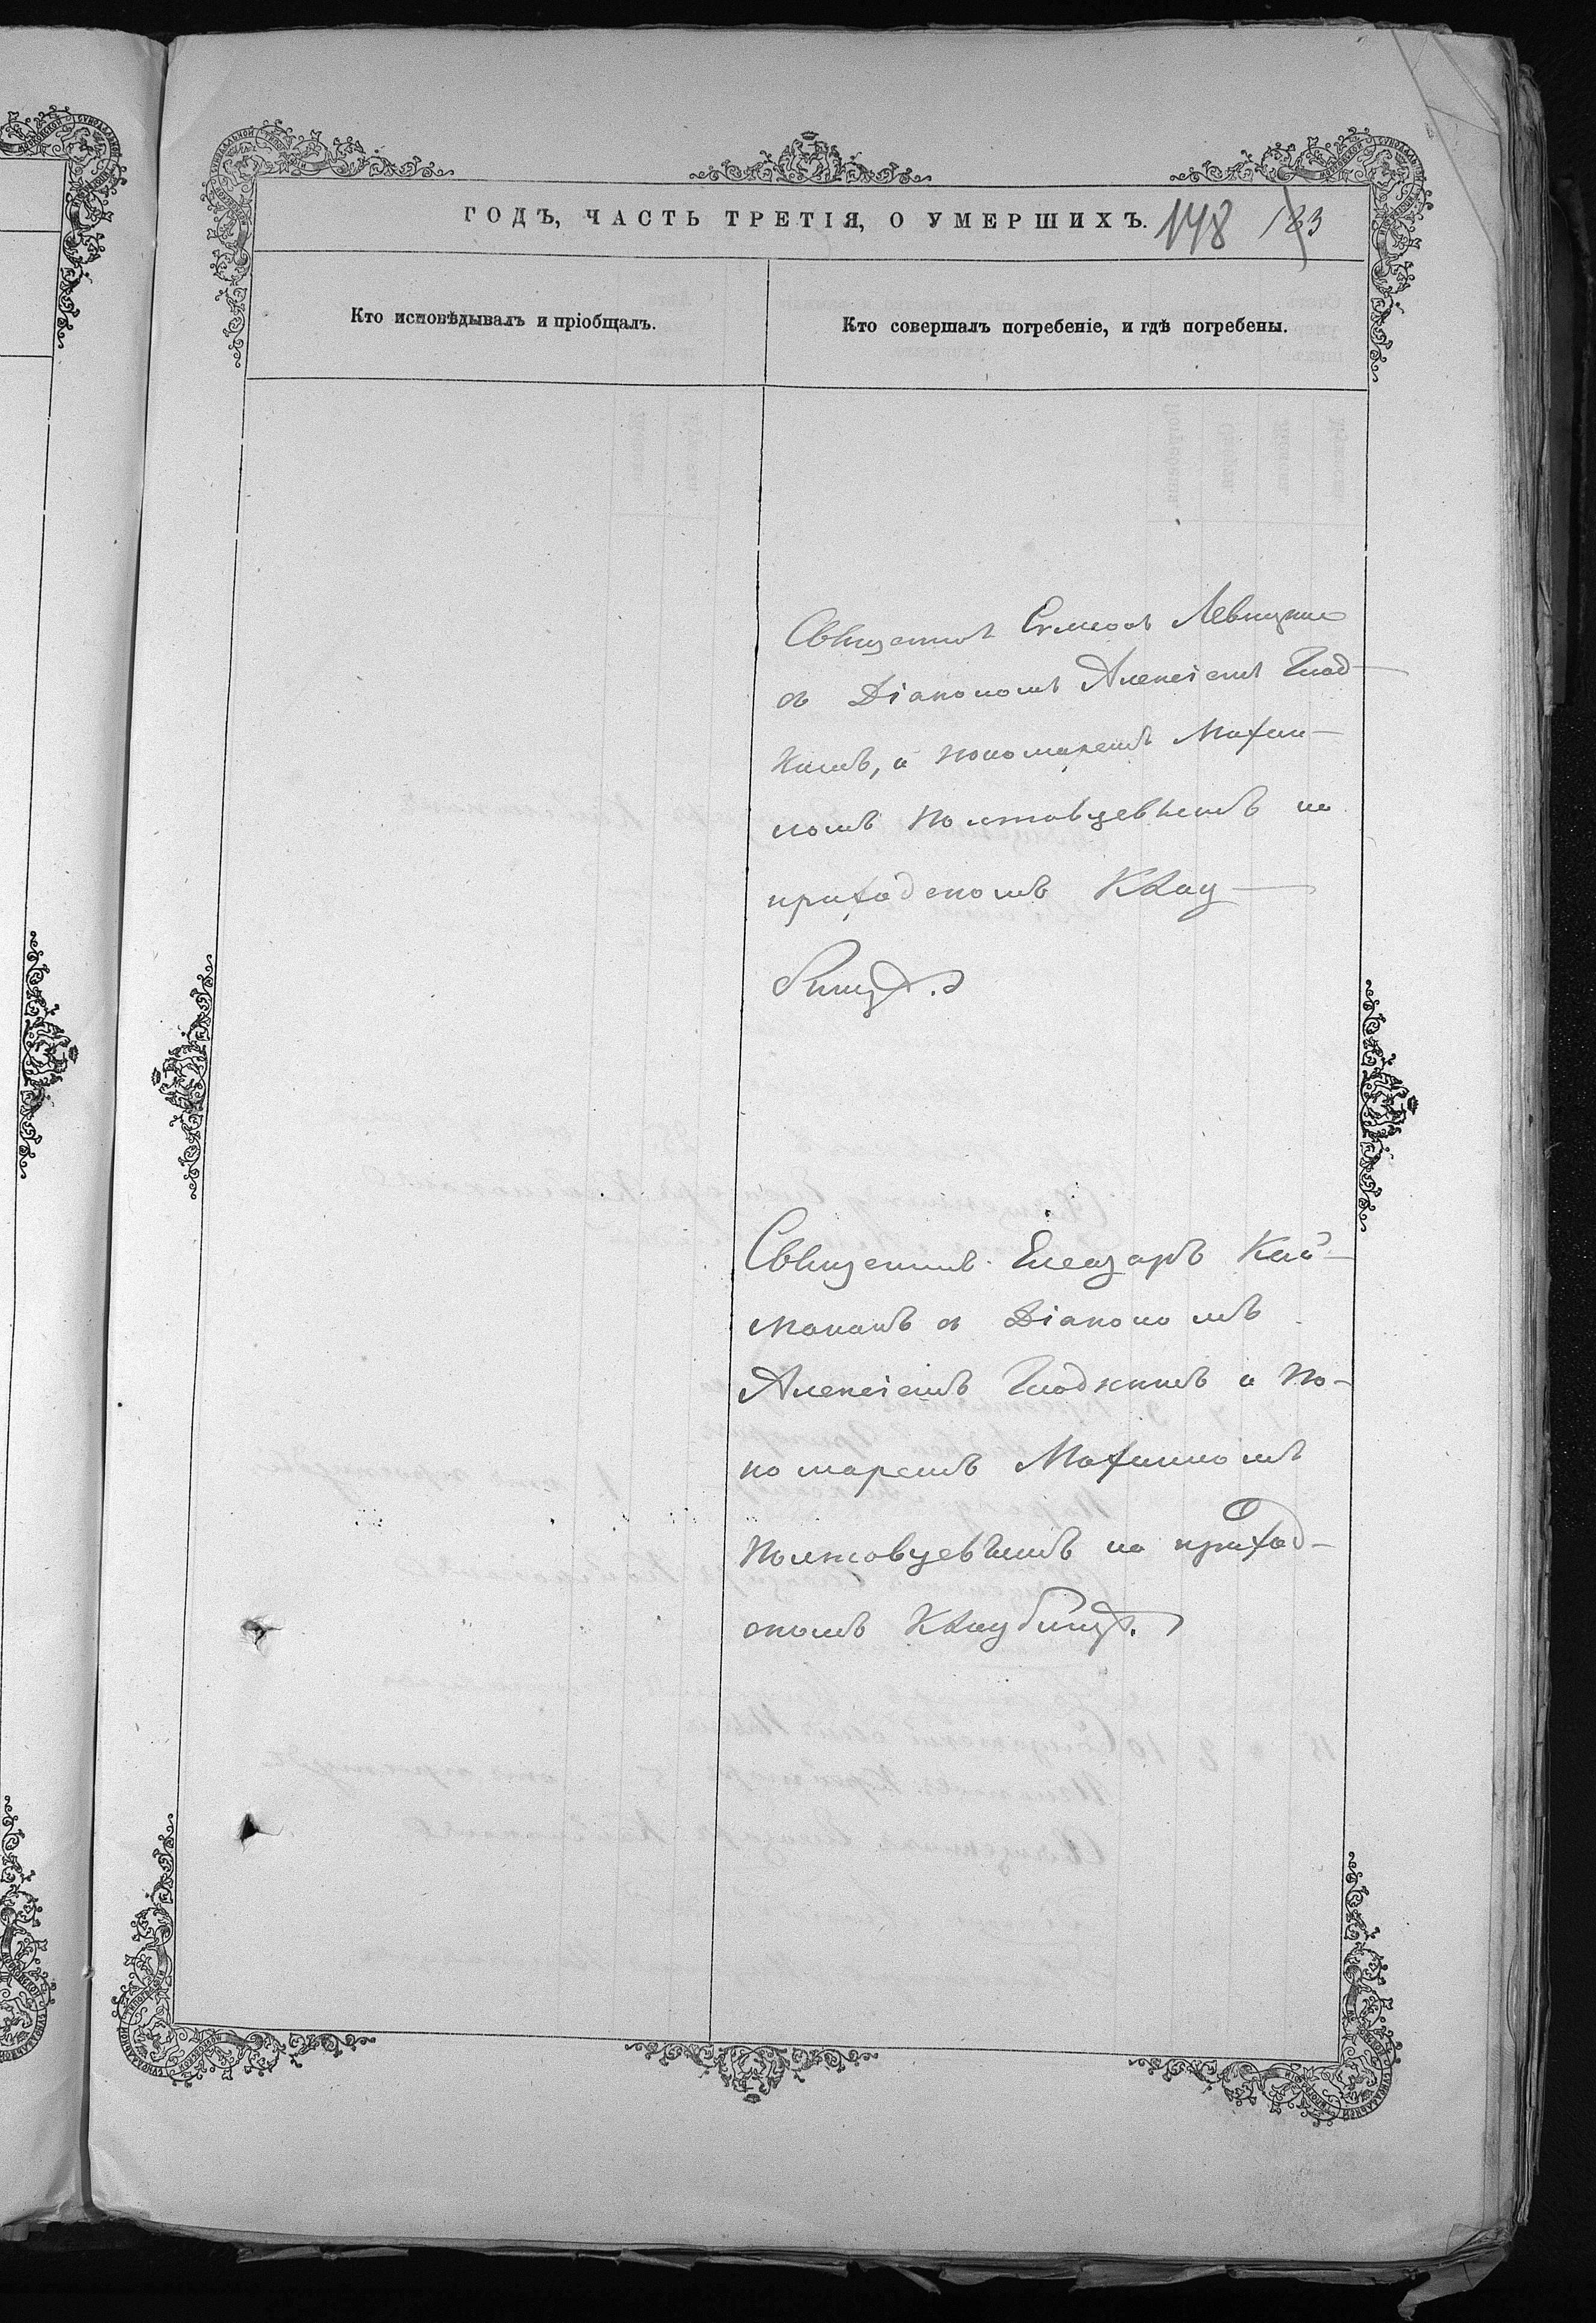 ГОДЪ, ЧАСТЬ ТРЕТІЯ, О УМЕРШИХЪ. 148 183
Кто исповѣдывалъ и пріобщалъ.
Кто совершалъ погребеніе, и гдѣ погребены.
Свящennик Симеонъ Левицкій
съ Діакономъ Алексіемъ Глад-
кимъ, и пономаремъ Максим-
помъ Полтавцевымъ на
приходскомъ Клад-
бищѣ.
Священникъ Елеазаръ Кай-
макамъ съ Діакономъ
Алексіемъ Гладкимъ и По-
номаремъ
Полтавцевымъ на приход-
скомъ Кладбищѣ.